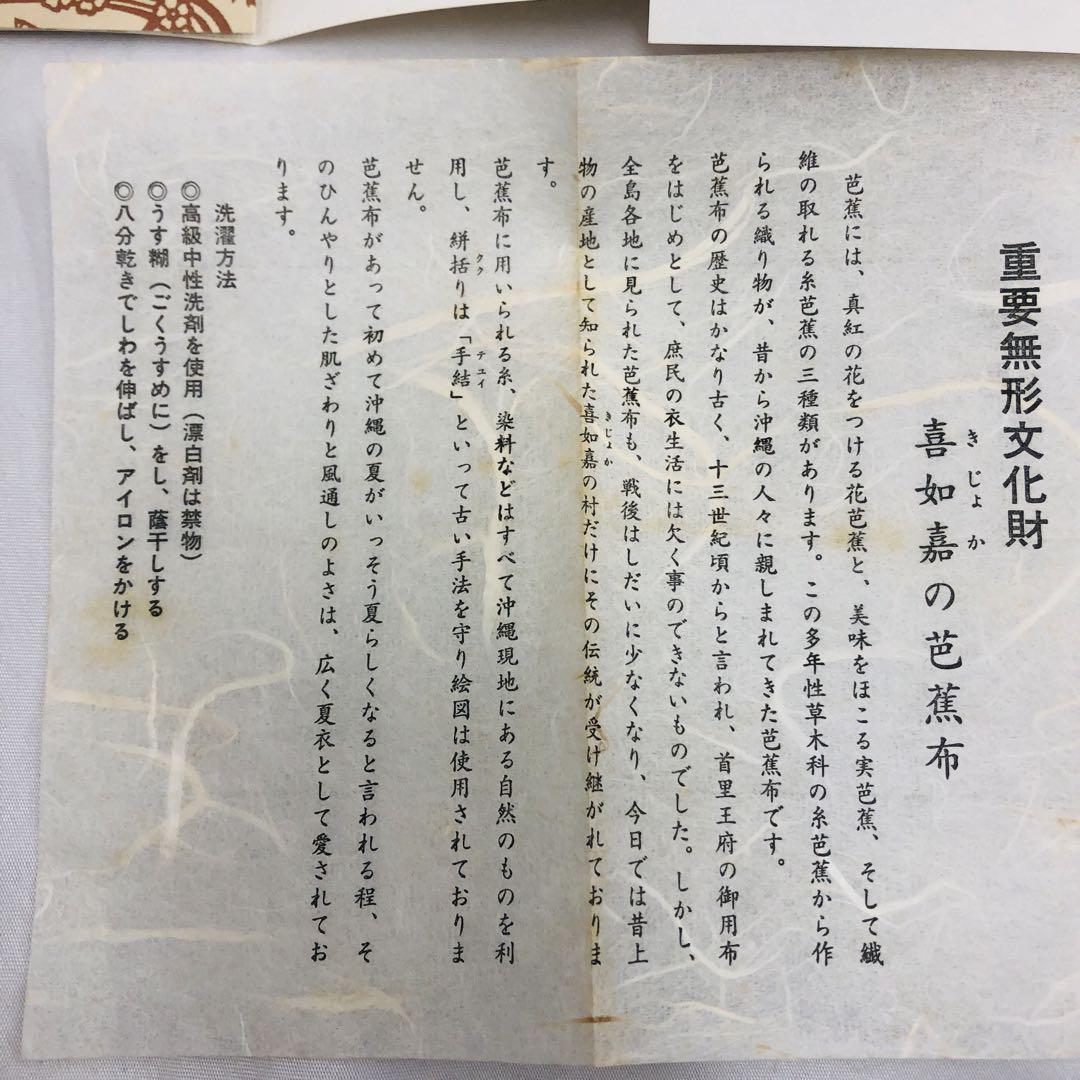 重要無形文化財
喜如嘉の芭蕉布
きじょか
芭蕉には、真紅の花をつける花芭蕉と、美味をほこる実芭蕉、そして繊
維の取れる糸芭蕉の三種類があります。この多年性草木科の糸芭蕉から作
られる織り物が、昔から沖縄の人々に親しまれてきた芭蕉布です。
芭蕉布の歴史はかなり古く、十三世紀頃からと言われ、首里王府の御用布
をはじめとして、庶民の衣生活には欠く事のできないものでした。しかし、
全島各地に見られた芭蕉布も、戦後はしだいに少なくなり、今日では昔上
物の産地として知られた喜如嘉の村だけにその伝統が受け継がれておりま
きじょか
す。
芭蕉布に用いられる糸、染料などはすべて沖縄現地にある自然のものを利
用し、絣括りは「手結」といって古い手法を守り絵図は使用されておりま
クク
テユイ
せん。
芭蕉布があって初めて沖縄の夏がいっそう夏らしくなると言われる程、そ
のひんやりとした肌ざわりと風通しのよさは、広く夏衣として愛されてお
ります。
洗濯方法
◎高級中性洗剤を使用（漂白剤は禁物）
◎うす糊（ごくうすめに）をし、蔭干しする
◎八分乾きでしわを伸ばし、アイロンをかける